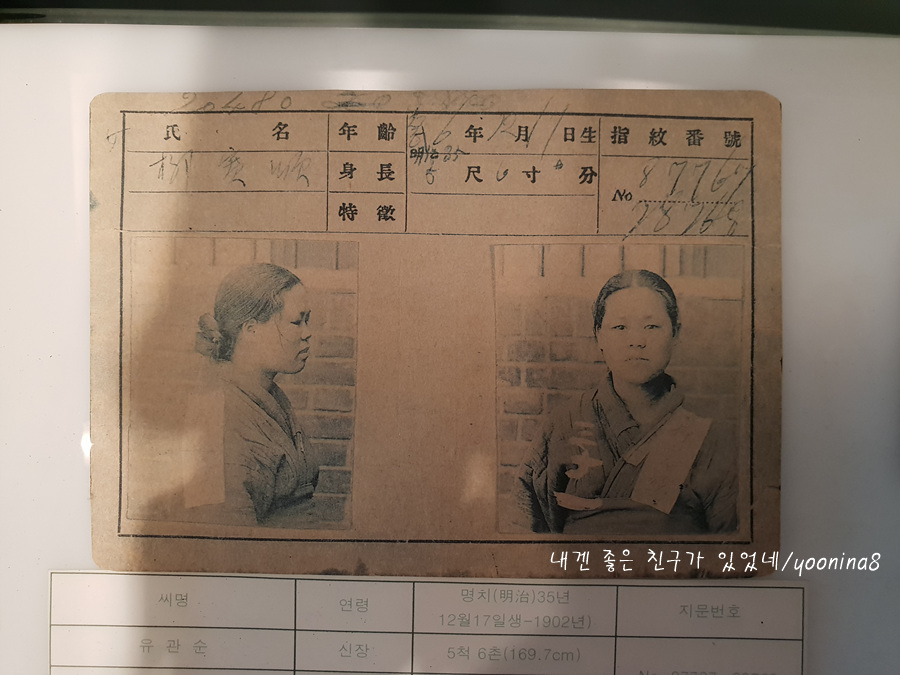 20480
氏 名 年齡 年 月 日生 指紋番號
明治35
柳寬順 身長 5 尺 6 寸 分 No 87767
特徵
내겐 좋은 친구가 있었네/yoonina8
씨명 연령 명치(明治)35년 지문번호
12월17일생-1902년)
유 관 순 신장 5척 6촌(169.7cm)